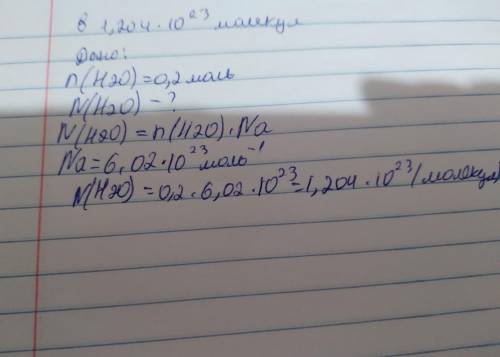 в 1,204·10²³ молекул
Дано:
n(H2O)=0,2 моль
N(H2O)-?
N(H2O)=n(H2O)·Na
Na=6,02·10²³ моль⁻¹
N(H2O)=0,2·6,02·10²³=1,204·10²³(молекул)